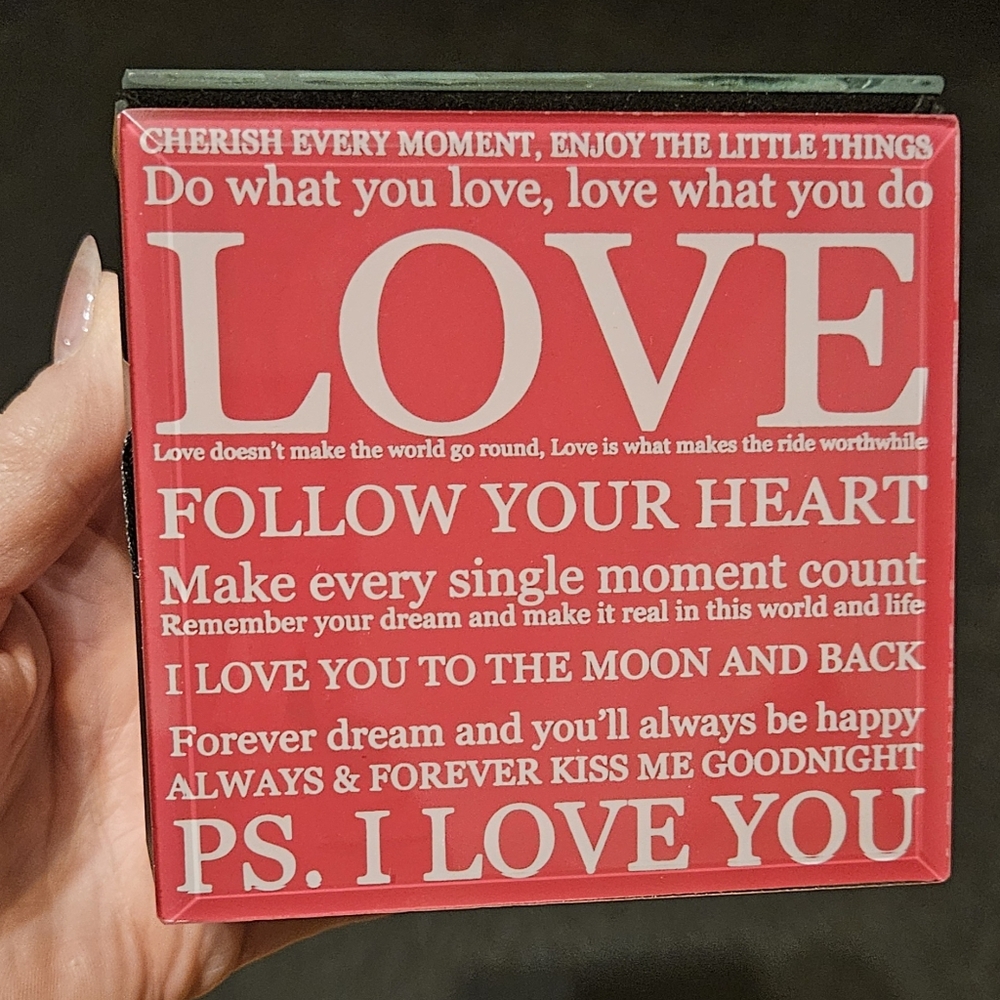 CHERISH EVERY MOMENT, ENJOY THE LITTLE THINGS
Do what you love, love what you do
LOVE
Love doesn't make the world go round, Love is what makes the ride worthwhile
FOLLOW YOUR HEART
Make every single moment count
Remember your dream and make it real in this world and life
I LOVE YOU TO THE MOON AND BACK
Forever dream and you'll always be happy
ALWAYS & FOREVER KISS ME GOODNIGHT
PS. I LOVE YOU